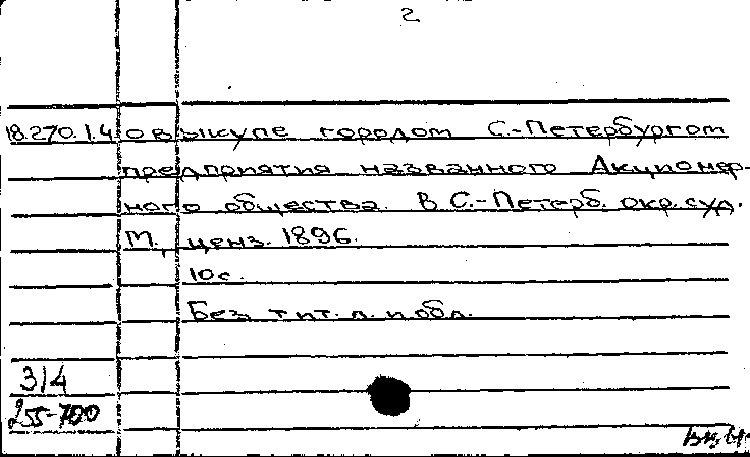 2
18.270.1.4 О выкупе городом С.-Петербургом
предприятия названного Акционер-
ного общества. В С.-Петерб. окр. суд.
М., ценз. 1896.
10с.
Без тит. л. и обл.
314
255-700